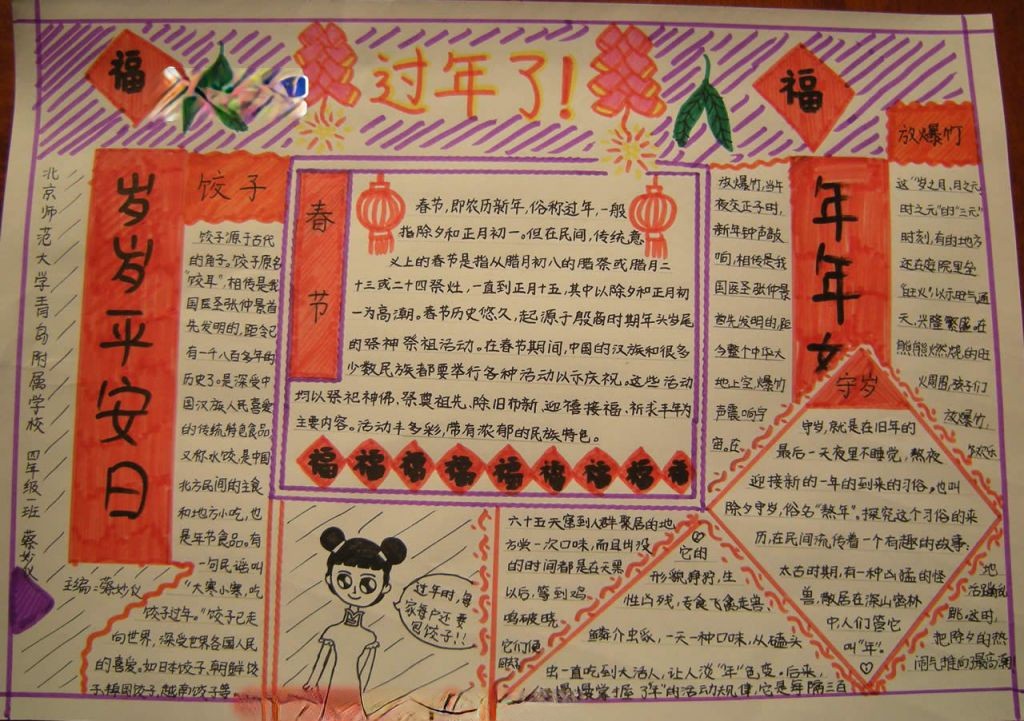 福
过年了!
福
放爆竹
北京师范大学青岛附属学校
四年级一班
岁岁平安日
主编:蔡妙仪
饺子
饺子源于古代
的角子。饺子原名
"饺耳",相传是我
国医圣张仲景首
先发明的,距今已
有一千八百多年的
历史了。是深受中
国汉族人民喜爱
的传统特色食品
又称水饺,是中国
北方民间的主食
和地方小吃,也
是年节食品。有
一句民谣叫
"大寒小寒,吃
饺子过年。"饺子已走
向世界,深受世界各国人民
的喜爱。如日本饺子、朝鲜饺
子、越南饺子等。
春节
春节,即农历新年,俗称过年,一般
指除夕和正月初一。但在民间,传统意
义上的春节是指从腊月初八的腊祭或腊月二
十三或二十四祭灶,一直到正月十五,其中以除夕和正月初
一为高潮。春节历史悠久,起源于殷商时期年头岁尾
的祭神祭祖活动。在春节期间,中国的汉族和很多
少数民族都要举行各种活动以示庆祝。这些活动
均以祭祀神佛、祭奠祖先、除旧布新、迎禧接福、祈求丰年为
主要内容。活动丰多彩,带有浓郁的民族特色。
福 福 福 福 福 福 福 福 福
过年时,每
家每户还要
包饺子!!
放爆竹,当午
夜交正子时,
新年钟声敲
响,相传是我
国医圣张仲景
首先发明的,距
今整个中华大
地上空,爆竹
声震响宇
宙。在
年年
这"岁之月、月之元
时之元"的"三元"
时刻,有的地方
还在庭院里垒
"旺火",以示旺气通
天,兴隆繁盛。在
熊熊燃烧的旺
火周围,孩子们
放爆竹,
守岁
守岁,就是在旧年的
最后一天夜里不睡觉,熬夜
迎接新的一年的到来的习俗,也叫
除夕守岁,俗名"熬年"。探究这个习俗的来
历,在民间流传着一个有趣的故事:
太古时期,有一种凶猛的怪
兽,散居在深山密林
中人们管它
叫"年"。
它的
形貌狰狞,生
性凶残,专食飞禽走兽、
鳞介虫豸,一天一种口味,从磕头
虫一直吃到大活人,让人谈"年"色变。后来,
掌握了"年"的活动规律,它是每隔三百
六十五天窜到人群聚居的地
方尝一次口味,而且出没
的时间都是在天黑
以后,等到鸡
鸣破晓,
它们便
地
这时,
把除夕的热
闹气推向最高潮